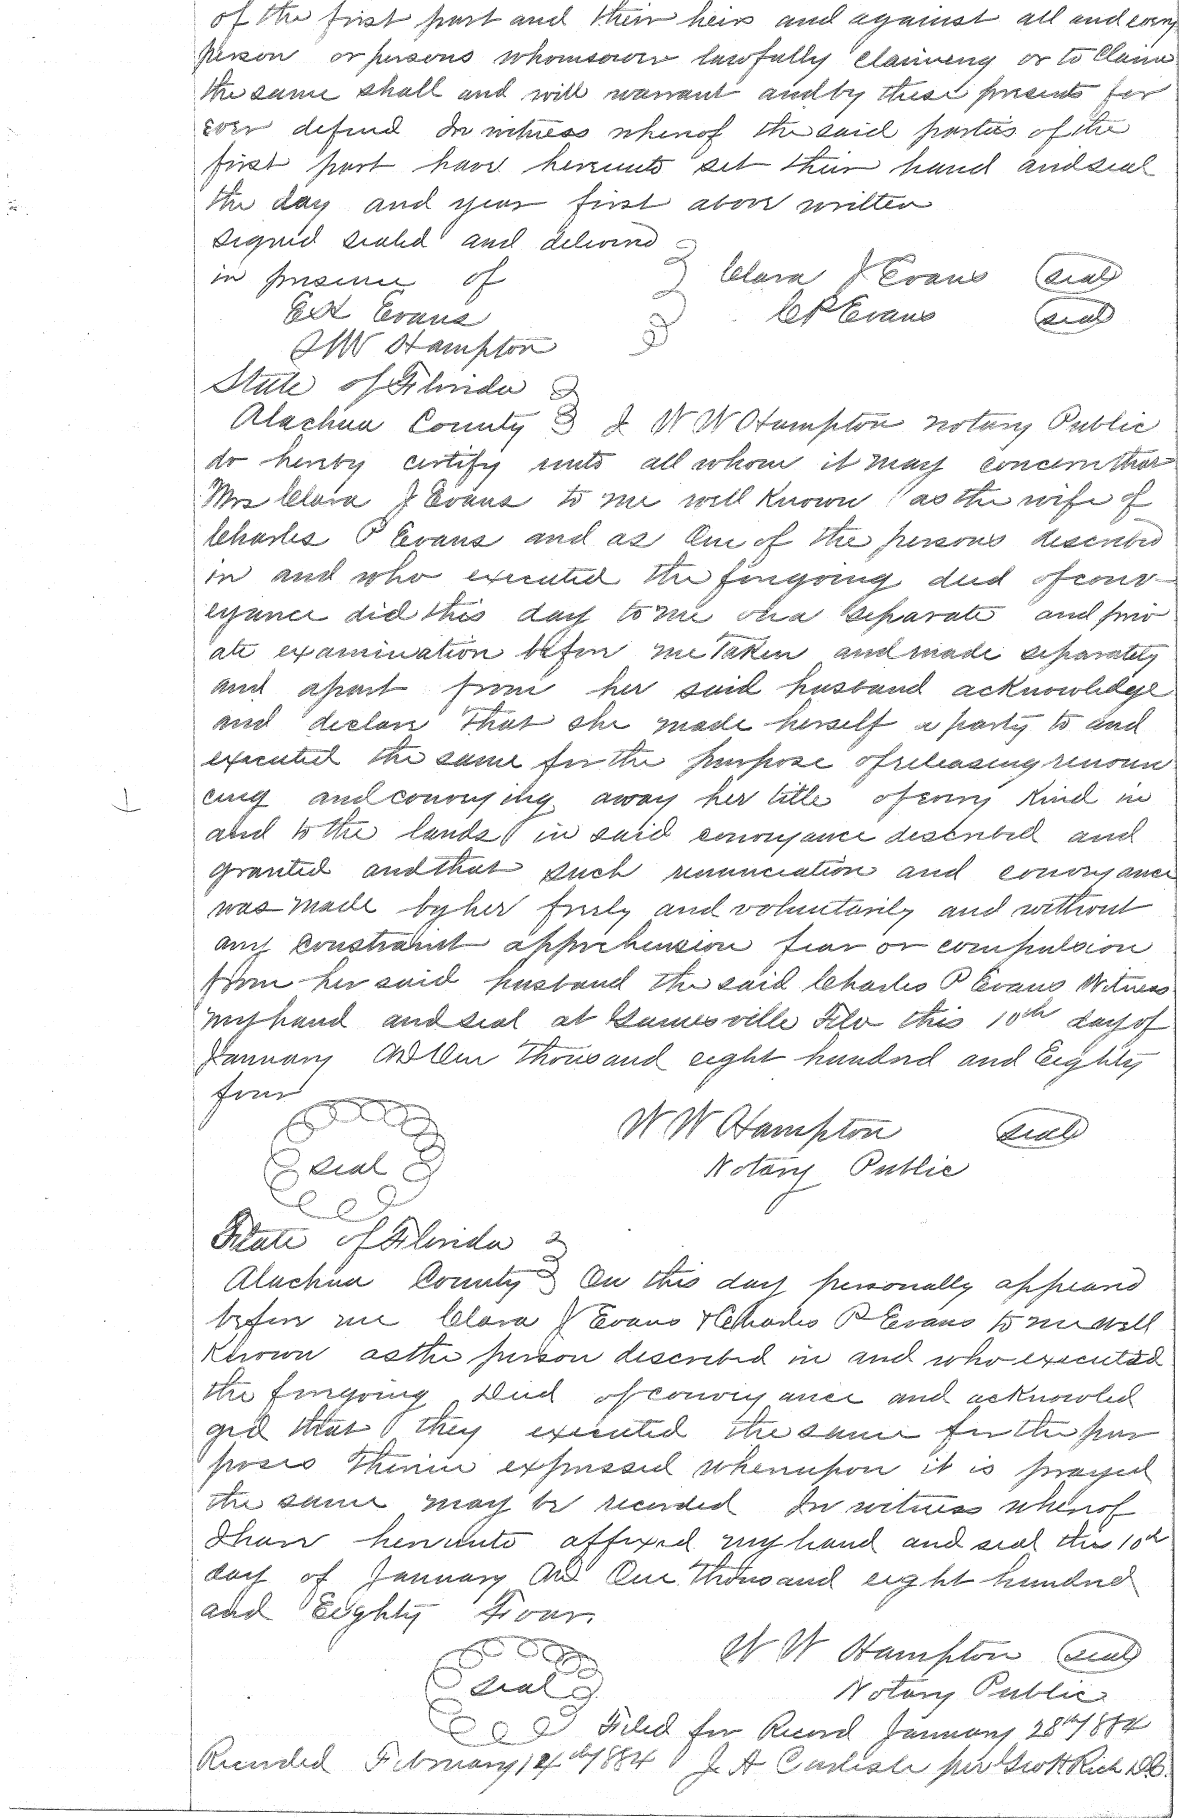 of the first part and their heirs and against all and every
person or persons whomsoever lawfully claiming or to Claim
the same shall and will warrant and by these presents for
ever defend In witness whereof the said parties of the
first part have hereunto set their hand and seal
the day and year first above written
signed sealed and delivered
in presence of Clara J Evans seal
Evans C P Evans seal
Hampton
State of Florida
Alachua County I W W Hampton notary Public
do hereby certify unto all whom it may concern that
Mrs Clara J Evans to me well Known as the wife of
Charles P Evans and as One of the persons described
in and who executed the foregoing deed of conv-
eyance did this day to me on a separate and priv
ate examination before me Taken and made separately
and apart from her said husband acknowledge
and declare That she made herself a party to and
executed the same for the purpose of releasing renoun
cing and conveying away her title of every Kind in
and to the lands in said conveyance described and
granted and that such renunciation and conveyance
was made by her freely and voluntarily and without
any constraint apprehension fear or compulsion
from her said husband the said Charles P Evans Witness
my hand and seal at Gainesville Fla this 10th day of
January AD One Thousand eight hundred and Eighty
four
W W Hampton seal
seal Notary Public
State of Florida
Alachua County On this day personally appeared
before me Clara J Evans & Charles P Evans to me well
Known as the person described in and who executed
the foregoing Deed of conveyance and acknowled
ged that they executed the same for the pur
poses Therein expressed whereupon it is prayed
the same may be recorded In witness whereof
I have hereunto affixed my hand and seal this 10th
day of January AD One Thousand eight hundred
and Eighty Four.
W W Hampton seal
seal Notary Public
Filed for Record January 28th 1884
Recorded February 14th 1884 J A Carlisle per Geo H Rich D.C.